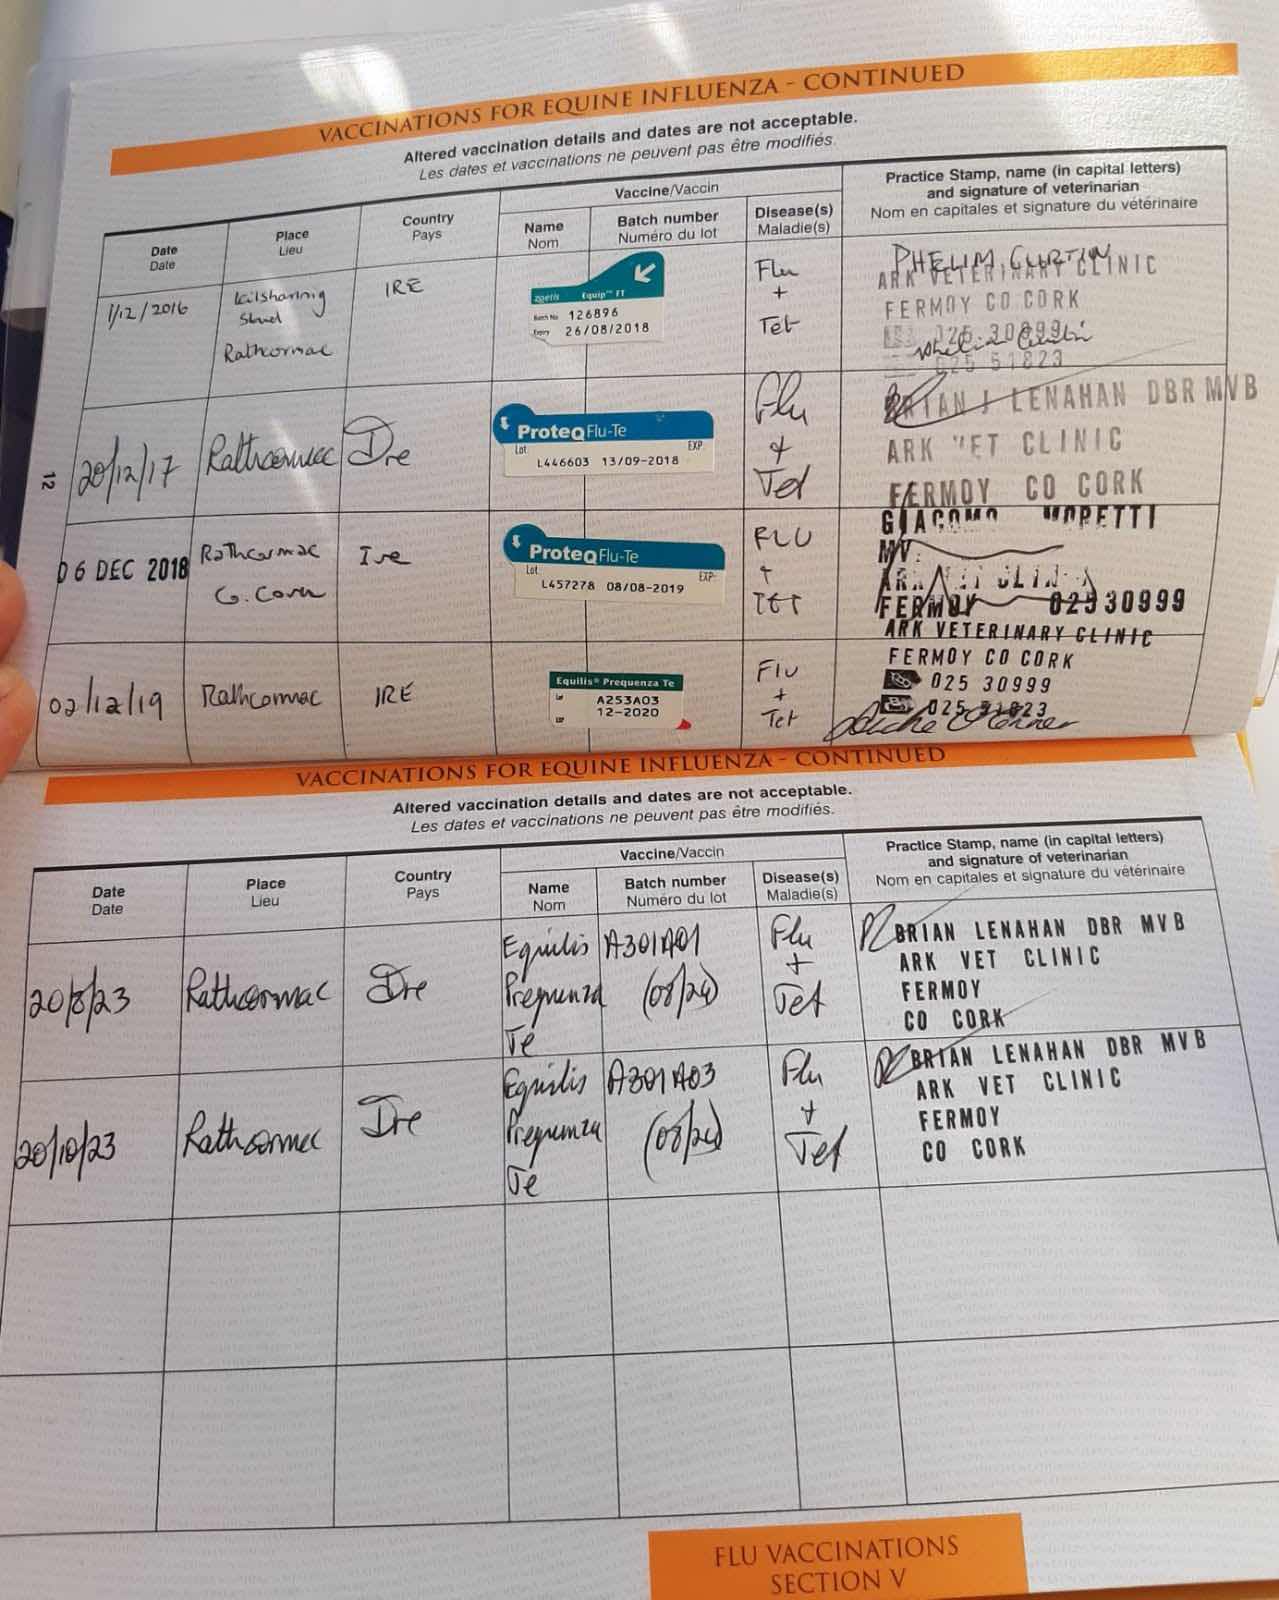 VACCINATIONS FOR EQUINE INFLUENZA - CONTINUED
Altered vaccination details and dates are not acceptable.
Les dates et vaccinations ne peuvent pas être modifiés.
Date
Date
Place
Lieu
Country
Pays
Vaccine/Vaccin
Name
Nom
Batch number
Numéro du lot
Disease(s)
Maladie(s)
Practice Stamp, name (in capital letters)
and signature of veterinarian
Nom en capitales et signature du vétérinaire
1/12/2016
Kilshannig
Stud
Rathcormac
IRE
zoetis Equip™ FT
Batch No 126896
Expiry 26/08/2018
Flu
+
Tet
PHELIM CURTIN
ARK VETERINARY CLINIC
FERMOY CO CORK
025 30999
025 51823
12
20/12/17
Rathcormac
Ire
ProteqFlu-Te
Lot EXP
L446603 13/09-2018
Flu
+
Tet
BRIAN J LENAHAN DBR MVB
ARK VET CLINIC
FERMOY CO CORK
06 DEC 2018
Rathcormac
Co. Cork
Ire
ProteqFlu-Te
Lot EXP
L457278 08/08-2019
FLU
+
TET
GIACOMO MORETTI
MV
ARK VET CLINIC
FERMOY 02530999
02/12/19
Rathcormac
IRE
Equilis® Prequenza Te
Lot A253A03
EXP 12-2020
Flu
+
Tet
ARK VETERINARY CLINIC
FERMOY CO CORK
025 30999
025 51823
VACCINATIONS FOR EQUINE INFLUENZA - CONTINUED
Altered vaccination details and dates are not acceptable.
Les dates et vaccinations ne peuvent pas être modifiés.
Date
Date
Place
Lieu
Country
Pays
Vaccine/Vaccin
Name
Nom
Batch number
Numéro du lot
Disease(s)
Maladie(s)
Practice Stamp, name (in capital letters)
and signature of veterinarian
Nom en capitales et signature du vétérinaire
20/8/23
Rathcormac
Ire
Equilis
Prequenza
Te
A301A01
(08/24)
Flu
+
Tet
BRIAN LENAHAN DBR MVB
ARK VET CLINIC
FERMOY
CO CORK
20/10/23
Rathcormac
Ire
Equilis
Prequenza
Te
A301A03
(08/24)
Flu
+
Tet
BRIAN LENAHAN DBR MVB
ARK VET CLINIC
FERMOY
CO CORK
FLU VACCINATIONS
SECTION V